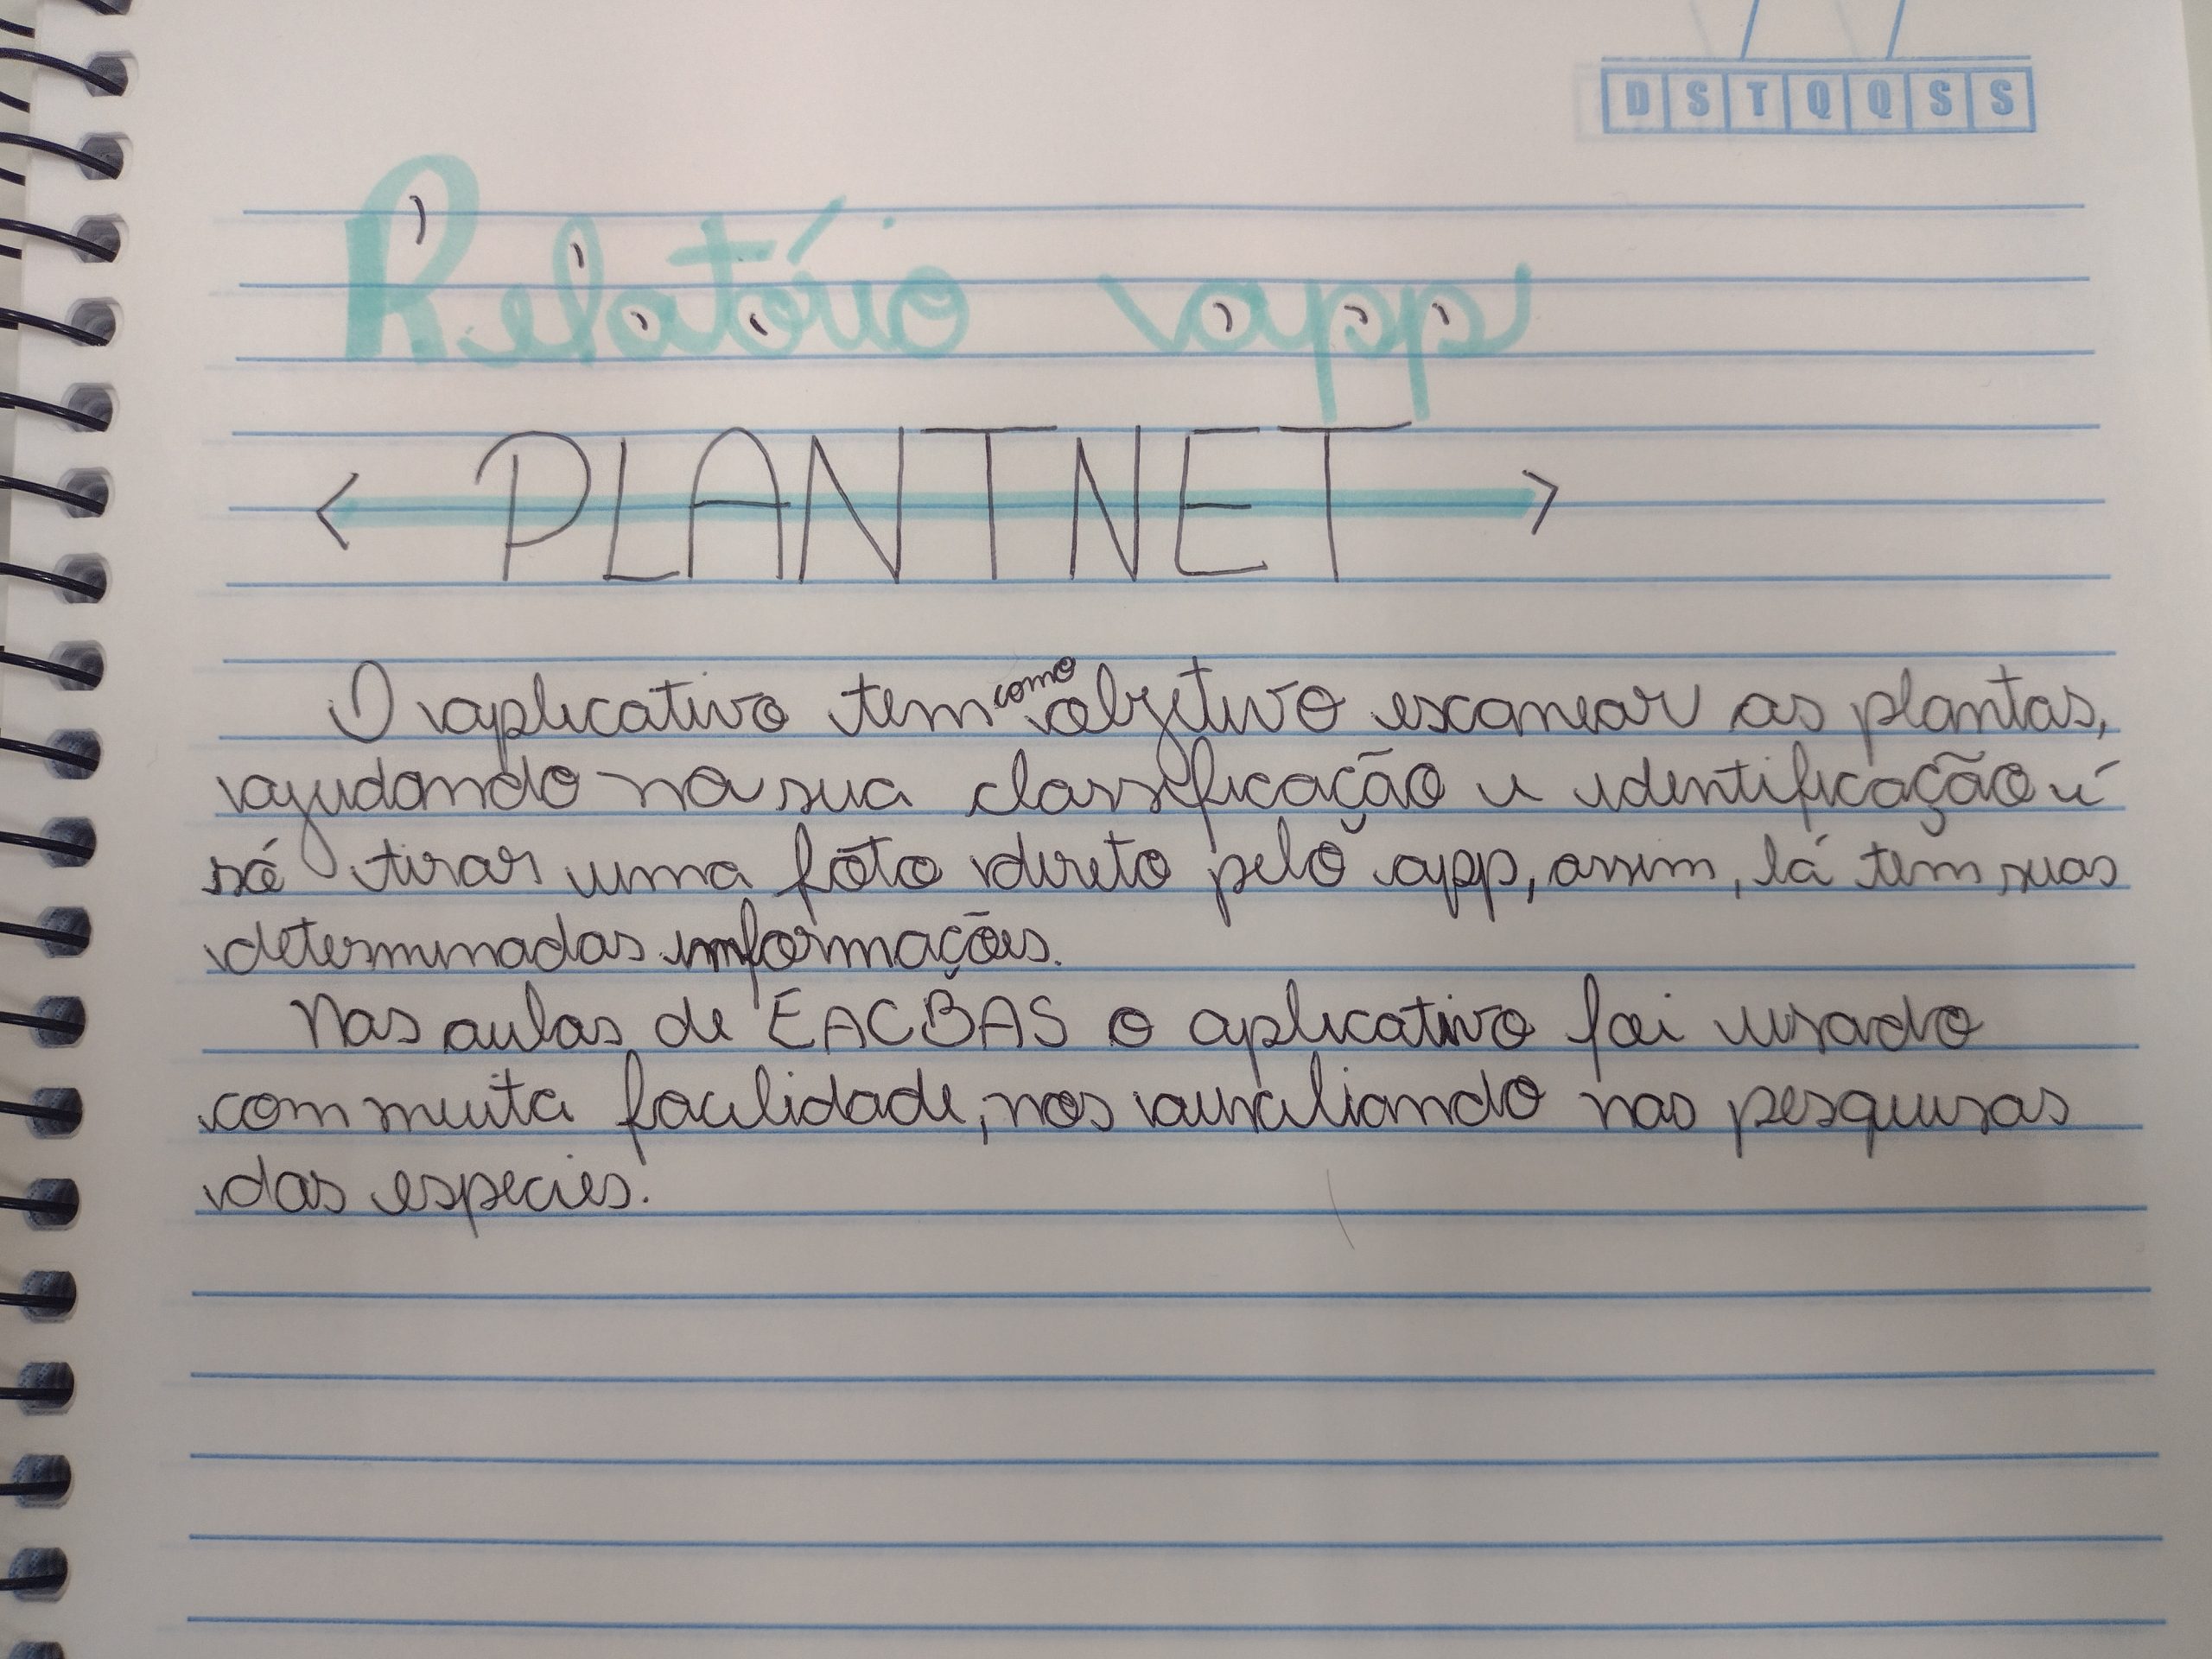 D S T Q Q S S
Relatório app
PLANTNET
O aplicativo tem como objetivo escanear as plantas,
ajudando na sua classificação e identificação é
só tirar uma foto direto pelo app, assim, lá tem suas
determinadas informações.
Nas aulas de EACBAS o aplicativo foi usado
com muita facilidade, nos auxiliando nas pesquisas
das especies.